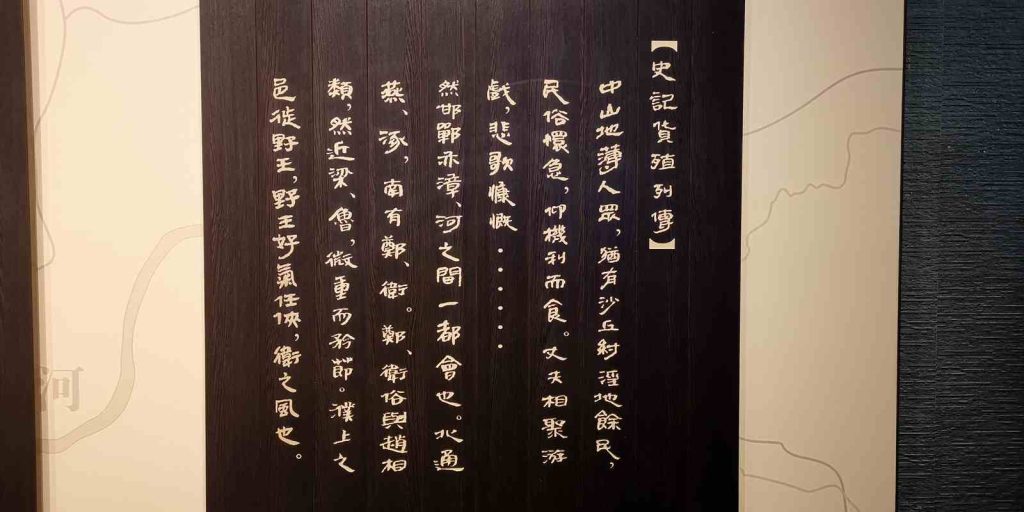 【史記貨殖列傳】
中山地薄人眾，猶有沙丘紂淫地餘民，
民俗懁急，仰機利而食。丈夫相聚游
戲，悲歌慷慨······
然邯鄲亦漳、河之間一都會也。北通
燕、涿，南有鄭、衛。鄭、衛俗與趙相
類，然近梁、魯，微重而矜節。濮上之
邑徙野王，野王好氣任俠，衛之風也。
河